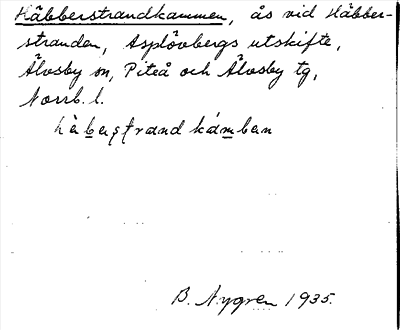 Häbberstrandkammen, ås vid Häbber-
stranden, Asplövbergs utskifte,
Älvsby sn, Piteå och Älvsby tg,
Norrb. l.
hèbərstrandkámbən
B. Nygren 1935.